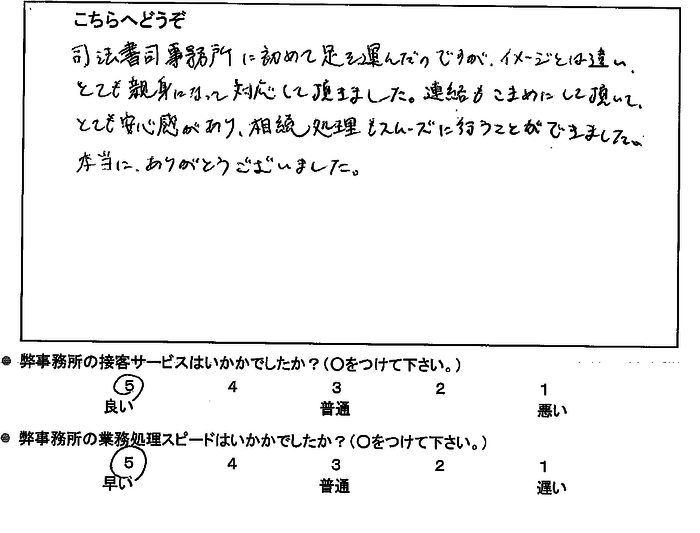 こちらへどうぞ
司法書司事務所に初めて足を運んだのですが、イメージとは違い、
とても親身になって対応して頂きました。連絡もこまめにして頂いて、
とても安心感があり、相続処理もスムーズに行うことができました。
本当に、ありがとうございました。
● 弊事務所の接客サービスはいかかでしたか？（〇をつけて下さい。）
5 4 3 2 1
良い 普通 悪い
● 弊事務所の業務処理スピードはいかかでしたか？（〇をつけて下さい。）
5 4 3 2 1
早い 普通 遅い